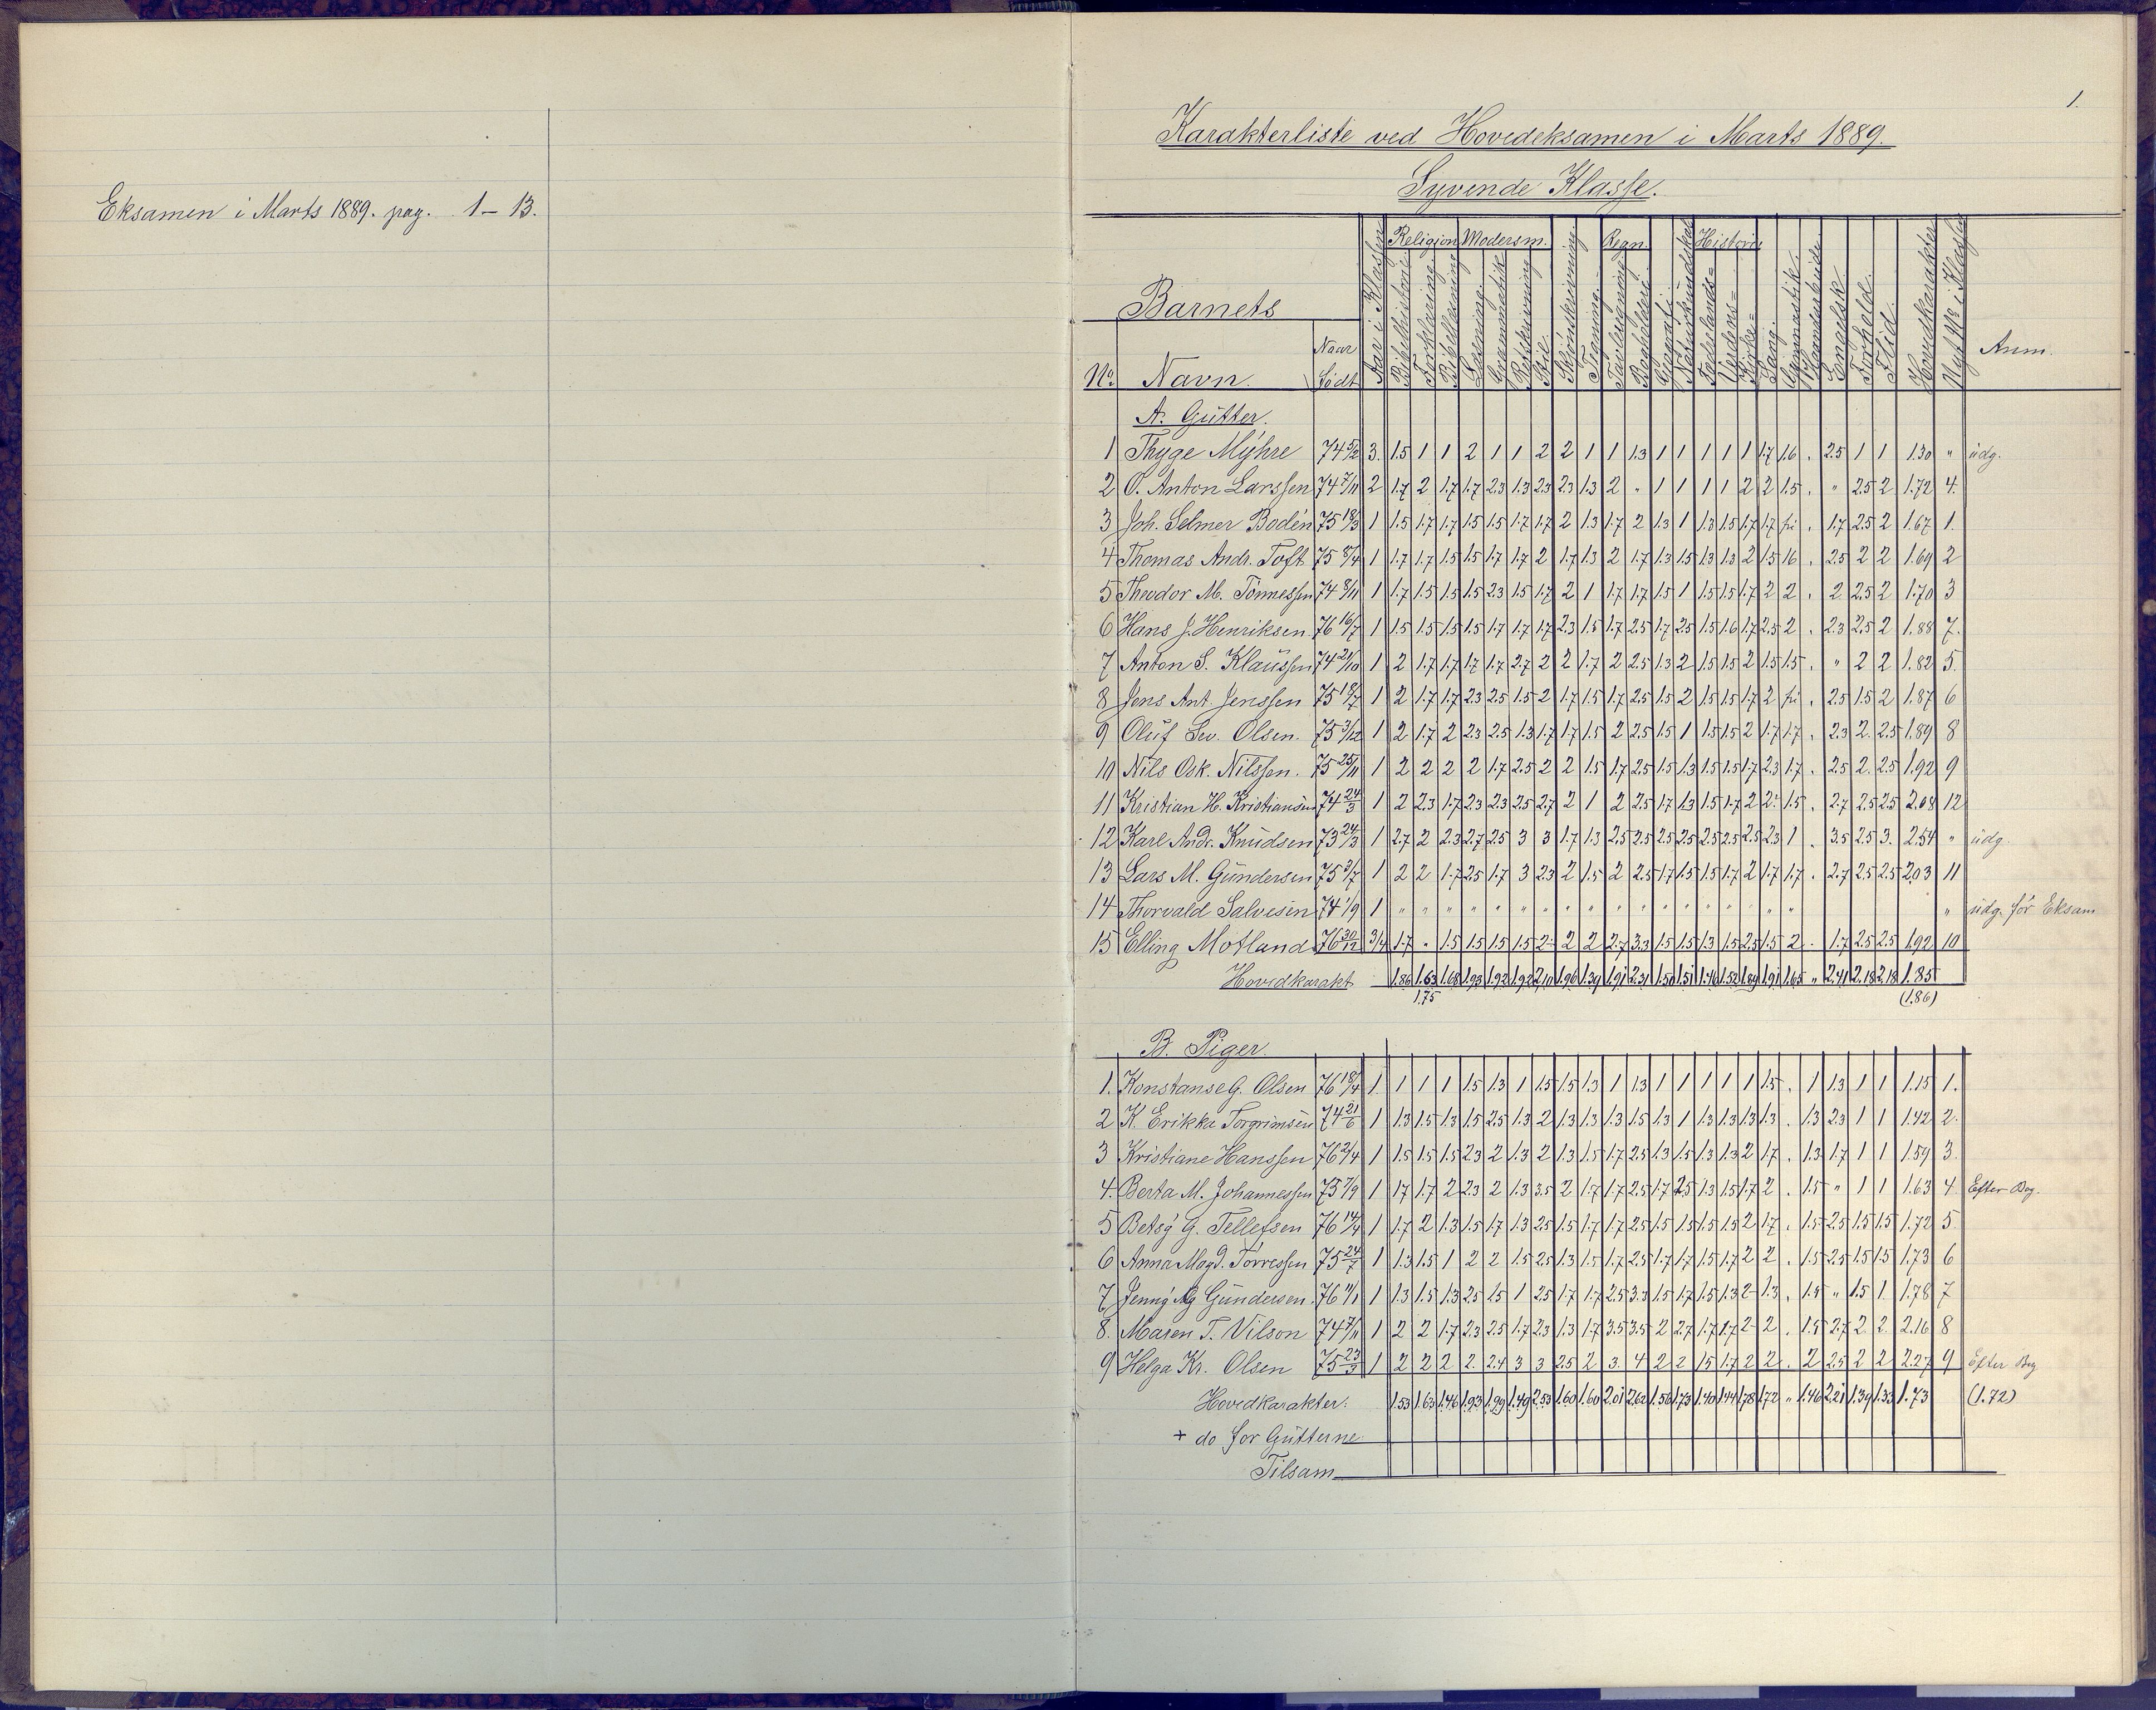 Eksamen i Marts 1889. pag. 1–13.
1.
Karakterliste ved Hovedeksamen i Marts 1889.
Syvende Klasse.
Barnets
No Navn. Naar Født Aar i Klassen Religion Bibelhistorie Forklaring Bibellæsning Modersm. Læsning Grammatik Retskrivning Stil Skjönskrivning Tegning Regn. Tavleregning Boghalderi Geografi Naturkundskab Historie Fædrelands= Verdens= Kirke= Sang. Gymnastik. Haandarbeide Engelsk Forhold Flid Hovedkarakter Nyt No i Klassen Anm.
A. Gutter.
1 Thyge Myhre 74 5/2 3. 1.5 1 1 2 1 1 2 2 1 1 1.3 1 1 1 1 1 1.7 1.6 . 2.5 1 1 1.30 " udg.
2 O. Anton Larssen 74 7/11 2 1.7 2 1.7 1.7 2.3 1.3 2.3 2.3 1.3 2 " 1 1 1 1 2 2 1.5 . " 2.5 2 1.72 4.
3 Joh. Selmer Bodén 75 18/3 1 1.5 1.7 1.7 1.5 1.5 1.7 1.7 2 1.3 1.7 2 1.3 1 1.3 1.5 1.7 1.7 fri . 1.7 2.5 2 1.67 1.
4 Thomas Andr. Toft 75 8/4 1 1.7 1.7 1.5 1.5 1.7 1.7 2 1.7 1.3 2 1.7 1.3 1.5 1.3 1.3 2 1.5 1.6 . 2.5 2 2 1.69 2
5 Theodor M. Tönnessen 74 8/11 1 1.7 1.5 1.5 1.5 2.3 1.5 1.7 2 1 1.7 1.7 1.5 1 1.5 1.5 1.7 2 2 . 2 2.5 2 1.70 3
6 Hans J. Henriksen 76 16/7 1 1.5 1.5 1.5 1.5 1.7 1.7 1.7 2.3 1.5 1.7 2.5 1.7 2.5 1.5 1.6 1.7 2.5 2 . 2.3 2.5 2 1.88 7.
7 Anton S. Klaussen 74 21/10 1 2 1.7 1.7 1.7 1.7 2.7 2 2 1.7 2 2.5 1.3 2 1.5 1.5 2 1.5 1.5 . " 2 2 1.82 5.
8 Jens Ant. Jenssen 75 18/7 1 2 1.7 1.7 2.3 2.5 1.5 2 1.7 1.5 1.7 2.5 1.5 2 1.5 1.5 1.7 2 fri . 2.5 1.5 2 1.87 6
9 Oluf Sev. Olsen. 75 3/12 1 2 1.7 2 2.3 2.5 1.3 1.7 1.7 1.5 2 2.5 1.5 1 1.5 1.5 2 1.7 1.7 . 2.3 2. 2.5 1.89 8
10 Nils Osk. Nilssen. 75 25/11 1 2 2 2 2 1.7 2.5 2 2 1.5 1.7 2.5 1.5 1.3 1.5 1.5 1.7 2.3 1.7 . 2.5 2. 2.5 1.92 9
11 Kristian H. Kristiansen 74 24/3 1 2 2.3 1.7 2.3 2.3 2.5 2.7 2 1 2 2.5 1.7 1.3 1.5 1.7 2 2 1.5 . 2.7 2.5 2.5 2.08 12
12 Karl Andr. Knudsen 73 24/3 1 2.7 2 2.3 2.7 2.5 3 3 1.7 1.3 2.5 2.5 2.5 2.5 2.5 2.5 2.5 2.3 1 . 3.5 2.5 3. 2.54 " udg.
13 Lars M. Gundersen 75 3/7 1 2 2 1.7 2.5 1.7 3 2.3 2 1.5 2 2.5 1.7 1.5 1.5 1.7 2 1.7 1.7 . 2.7 2.5 2.5 2.03 11
14 Thorvald Salvesen 74 1/9 1 " " " " " " " " " " " " " " " " " " udg. för Eksam
15 Elling Motland 76 30/12 3/4 1.7 " 1.5 1.5 1.5 1.5 2 2 2 2.7 3.3 1.5 1.5 1.3 1.5 2.5 1.5 2 . 1.7 2.5 2.5 1.92 10
Hovedkarakt 1.86 1.63 1.68 1.93 1.92 1.92 2.10 1.96 1.39 1.91 2.31 1.50 1.51 1.46 1.52 1.89 1.91 1.65 " 2.41 2.18 2.18 1.85
1.75 (1.86)
B. Piger.
1. Konstanse G. Olsen 76 18/4 1 1 1 1 1.5 1.3 1 1.5 1.5 1.3 1 1.3 1 1 1 1 1 1.5 . 1 1.3 1 1 1.15 1.
2 K. Erikka Torgrimsen 74 21/6 1 1.3 1.5 1.3 1.5 2.5 1.3 2 1.3 1.3 1.3 1.5 1.3 1 1.3 1.3 1.3 1.3 . 1.3 2.3 1 1 1.42 2.
3 Kristiane Hanssen 76 2/4 1 1.5 1.5 1.5 2.3 2 1.3 2 1.3 1.5 1.7 2.5 1.3 1.5 1.3 1.3 2 1.7 . 1.3 1.7 1 1 1.59 3.
4. Berta M. Johannessen 75 7/9 1 1.7 1.7 2 2.3 2 1.3 3.5 2 1.7 1.7 2.5 1.7 2.5 1.3 1.5 1.7 2 . 1.5 " 1 1 1.63 4 Efter Beg.
5 Betsy G. Tellefsen 76 14/4 1 1.7 2 1.3 1.5 1.7 1.3 2.5 1.5 1.7 1.7 2.5 1.5 1.5 1.5 1.5 2 1.7 . 1.5 2.5 1.5 1.5 1.72 5
6 Anna Magd. Torressen 75 24/7 1 1.3 1.5 1 2 2 1.5 2.5 1.3 1.5 1.7 2.5 1.7 1.7 1.5 1.7 2 2 . 1.5 2.5 1.5 1.5 1.73 6
7 Jenny Ag Gundersen. 76 11/1 1 1.3 1.5 1.3 2.5 1.5 1 2.5 1.7 1.7 2.5 3.3 1.5 1.7 1.5 1.3 2 1.3 . 1.5 " 1.5 1 1.78 7
8. Maren T. Vilson 74 7/11 1 2 2 1.7 2.3 2.5 1.7 2.3 1.3 1.7 3.5 3.5 2 2.7 1.7 1.7 2 2 . 1.5 2.7 2. 2. 2.16 8
9 Helga Kr. Olsen 75 23/3 1 2 2 2 2. 2.4 3 3 2.5 2 3. 4 2 2 1.5 1.7 2 2 . 2 2.5 2 2 2.27 9 Efter Beg
Hovedkarakter: 1.53 1.63 1.46 1.93 1.99 1.49 2.53 1.60 1.60 2.01 2.62 1.56 1.73 1.40 1.44 1.78 1.72 " 1.46 2.21 1.39 1.33 1.73 (1.72)
+ do for Gutterne
Tilsam